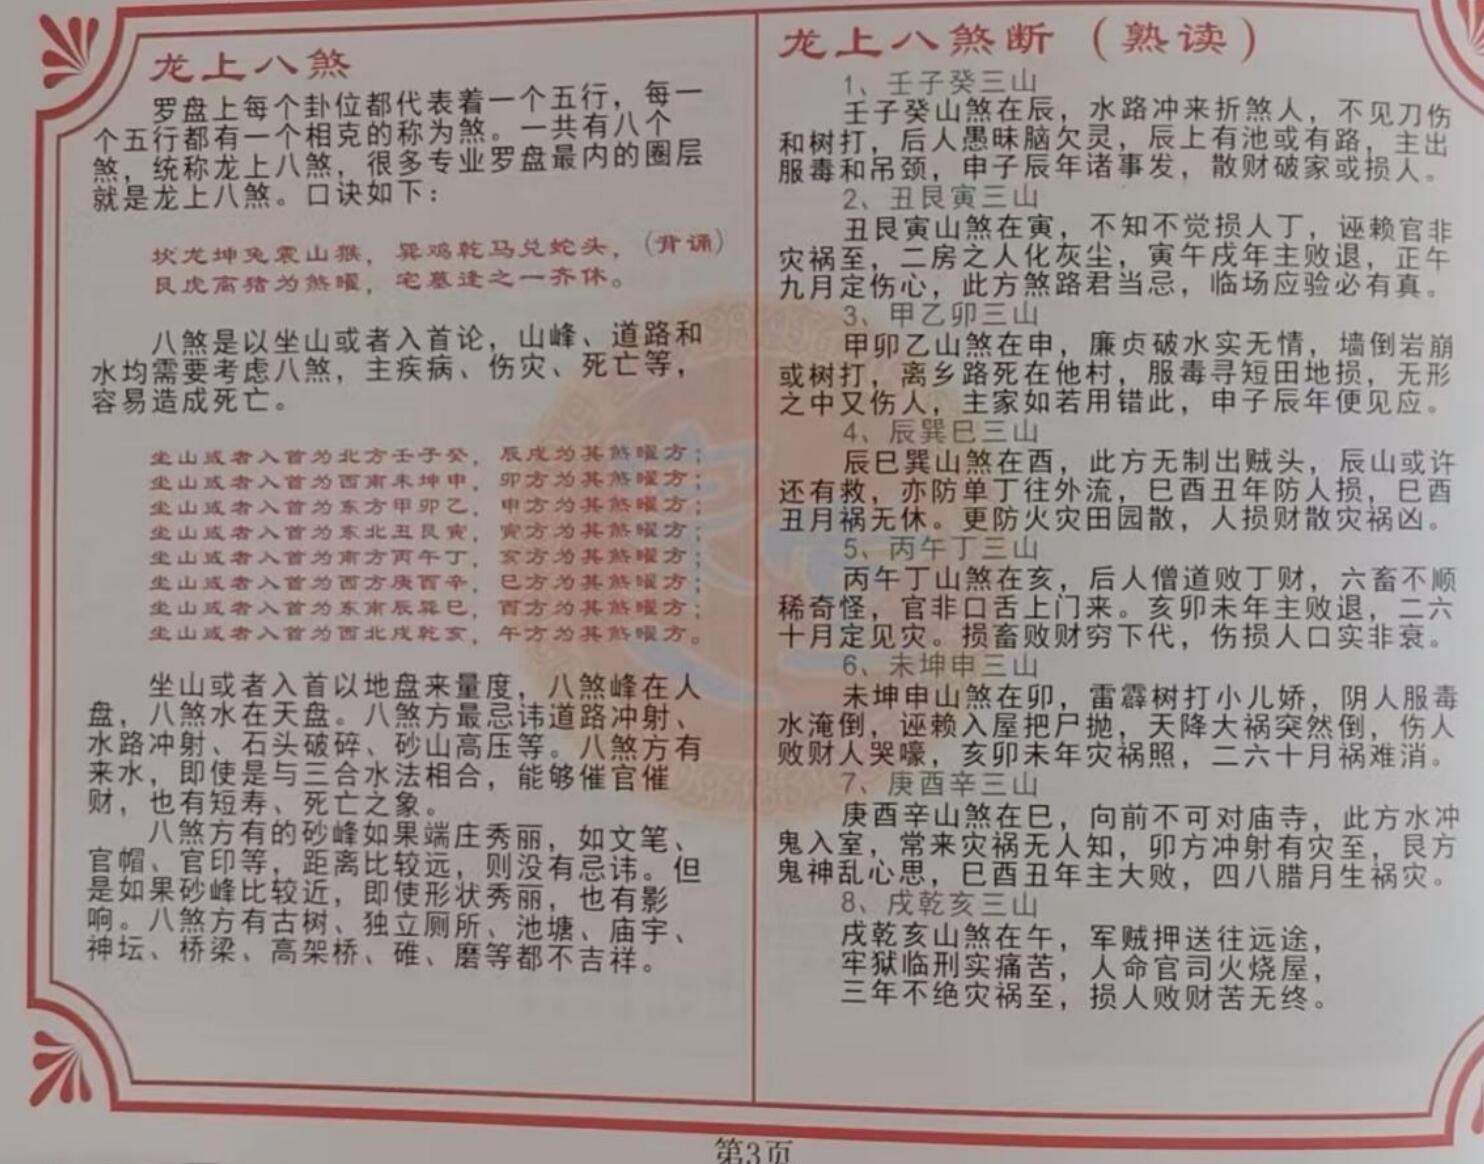 龙上八煞
罗盘上每个卦位都代表着一个五行，每一
个五行都有一个相克的称为煞。一共有八个
煞，统称龙上八煞，很多专业罗盘最内的圈层
就是龙上八煞。口诀如下：
坎龙坤兔震山猴，巽鸡乾马兑蛇头，（背诵）
艮虎离猪为煞曜，宅墓逢之一齐休。
八煞是以坐山或者入首论，山峰、道路和
水均需要考虑八煞，主疾病、伤灾、死亡等，
容易造成死亡。
坐山或者入首为北方壬子癸，辰戌为其煞曜方；
坐山或者入首为西南未坤申，卯方为其煞曜方；
坐山或者入首为东方甲卯乙，申方为其煞曜方；
坐山或者入首为东北丑艮寅，寅方为其煞曜方；
坐山或者入首为南方丙午丁，亥方为其煞曜方；
坐山或者入首为西方庚酉辛，巳方为其煞曜方；
坐山或者入首为东南辰巽巳，酉方为其煞曜方；
坐山或者入首为西北戌乾亥，午方为其煞曜方。
坐山或者入首以地盘来量度，八煞峰在人
盘，八煞水在天盘。八煞方最忌讳道路冲射、
水路冲射、石头破碎、砂山高压等。八煞方有
来水，即使是与三合水法相合，能够催官催
财，也有短寿、死亡之象。
八煞方有的砂峰如果端庄秀丽，如文笔、
官帽、官印等，距离比较远，则没有忌讳。但
是如果砂峰比较近，即使形状秀丽，也有影
响。八煞方有古树、独立厕所、池塘、庙宇、
神坛、桥梁、高架桥、碓、磨等都不吉祥。
龙上八煞断（熟读）
1、壬子癸三山
壬子癸山煞在辰，水路冲来折煞人，不见刀伤
和树打，后人愚昧脑欠灵，辰上有池或有路，主出
服毒和吊颈，申子辰年诸事发，散财破家或损人。
2、丑艮寅三山
丑艮寅山煞在寅，不知不觉损人丁，诬赖官非
灾祸至，二房之人化灰尘，寅午戌年主败退，正午
九月定伤心，此方煞路君当忌，临场应验必有真。
3、甲乙卯三山
甲卯乙山煞在申，廉贞破水实无情，墙倒岩崩
或树打，离乡路死在他村，服毒寻短田地损，无形
之中又伤人，主家如若用错此，申子辰年便见应。
4、辰巽巳三山
辰巳巽山煞在酉，此方无制出贼头，辰山或许
还有救，亦防单丁往外流，巳酉丑年防人损，巳酉
丑月祸无休。更防火灾田园散，人损财散灾祸凶。
5、丙午丁三山
丙午丁山煞在亥，后人僧道败丁财，六畜不顺
稀奇怪，官非口舌上门来。亥卯未年主败退，二六
十月定见灾。损畜败财穷下代，伤损人口实非衰。
6、未坤申三山
未坤申山煞在卯，雷霹树打小儿娇，阴人服毒
水淹倒，诬赖入屋把尸抛，天降大祸突然倒，伤人
败财人哭嚎，亥卯未年灾祸照，二六十月祸难消。
7、庚酉辛三山
庚酉辛山煞在巳，向前不可对庙寺，此方水冲
鬼入室，常来灾祸无人知，卯方冲射有灾至，艮方
鬼神乱心思，巳酉丑年主大败，四八腊月生祸灾。
8、戌乾亥三山
戌乾亥山煞在午，军贼押送往远途，
牢狱临刑实痛苦，人命官司火烧屋，
三年不绝灾祸至，损人败财苦无终。
第3页